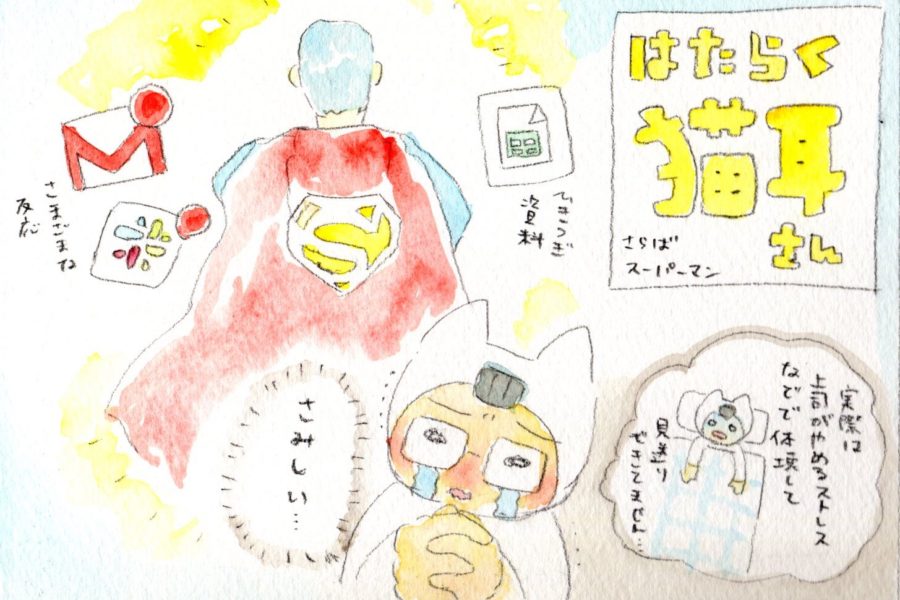 はたらく
猫耳
さん
さらば
スーパーマン
M
S
さまざまな
反応
てきつぎ
資料
さみしい…
実際は
上司がやめるストレス
なでで体壊して
見送り
できてません…